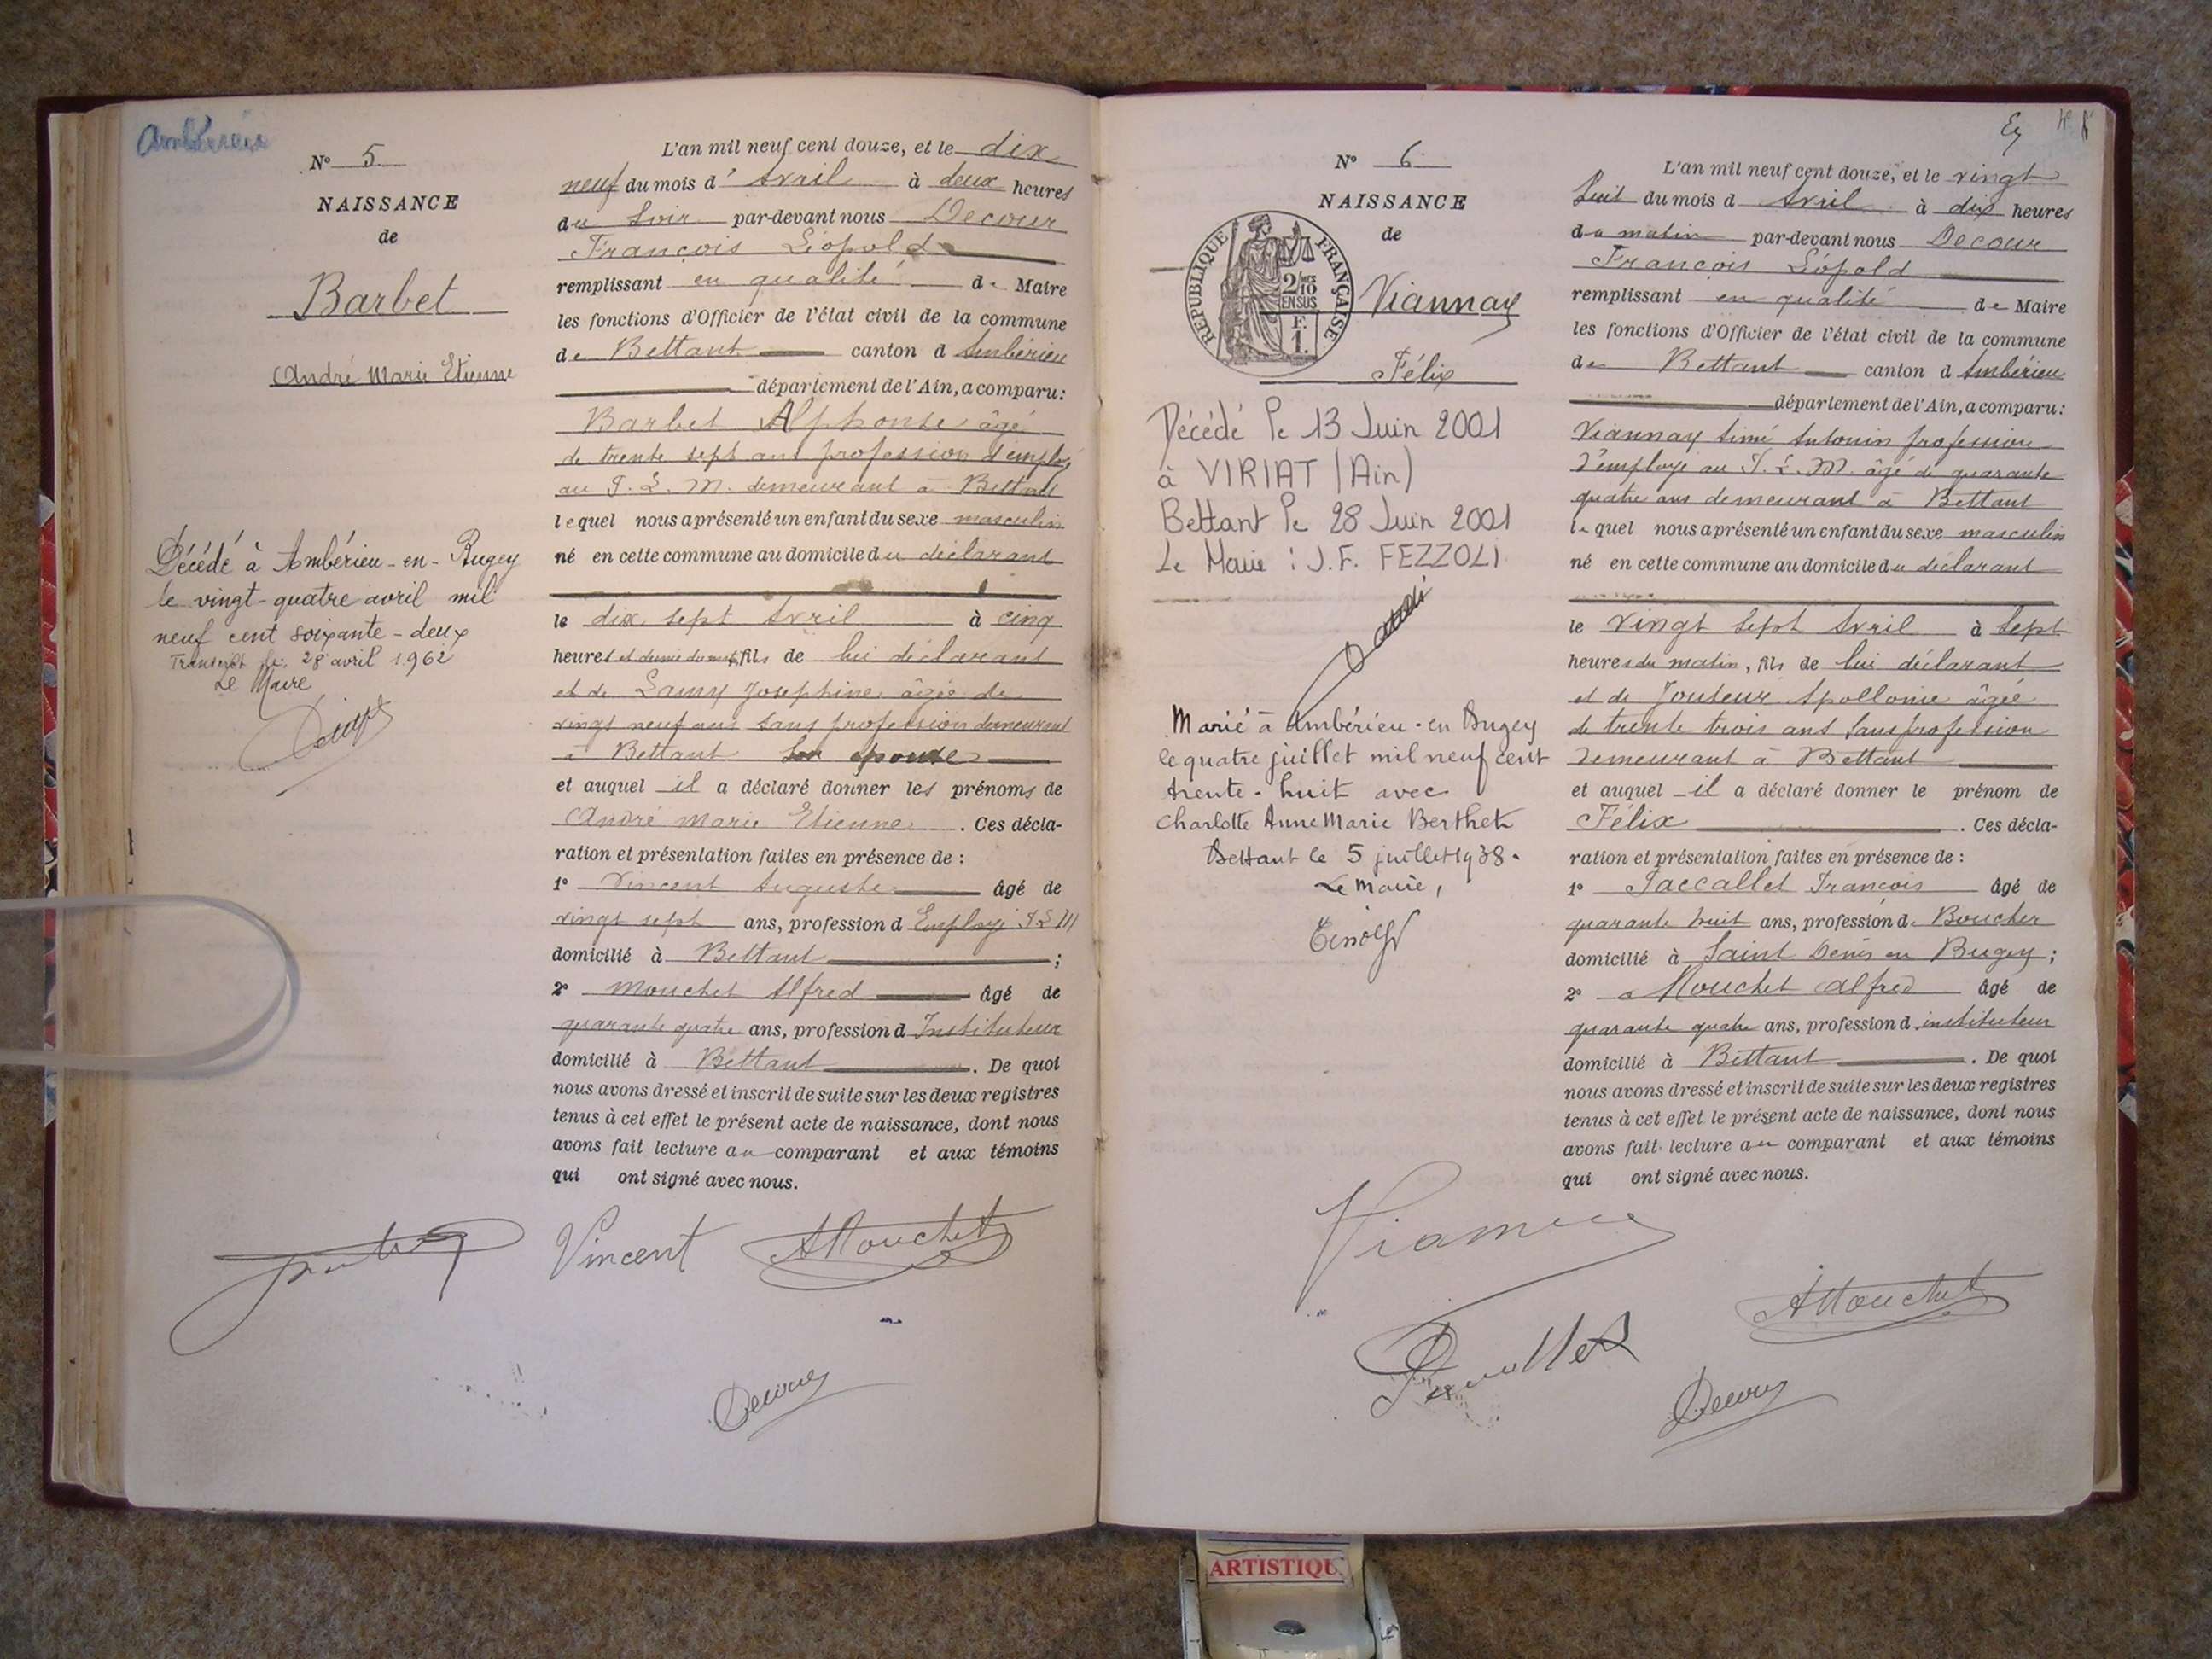 Ambérieu
N° 5
NAISSANCE
de
Barbet
André Marie Etienne
Décédé à Ambérieu-en-Bugey
le vingt-quatre avril mil
neuf cent soixante-deux
Transcrit le 28 avril 1962
Le Maire
L'an mil neuf cent douze, et le dix
neuf du mois d'Avril à deux heures
du Soir par-devant nous Decour
François Léopold
remplissant en qualité de Maire
les fonctions d'Officier de l'état civil de la commune
de Bettant canton d Ambérieu
département de l'Ain, a comparu:
Barbet Alphonse âgé
de trente sept ans profession d'employé
au P. L. M. demeurant à Bettant
lequel nous a présenté un enfant du sexe masculin
né en cette commune au domicile du déclarant
le dix sept Avril à cinq
heures et demie du matin, fils de lui déclarant
et de Lamy Josephine âgée de
vingt neuf ans sans profession demeurant
à Bettant son épouse
et auquel il a déclaré donner les prénoms de
André Marie Etienne. Ces décla-
ration et présentation faites en présence de :
1° Vincent Auguste âgé de
vingt sept ans, profession d Employé P L M
domicilié à Bettant ;
2° Mouchet Alfred âgé de
quarante quatre ans, profession d Instituteur
domicilié à Bettant . De quoi
nous avons dressé et inscrit de suite sur les deux registres
tenus à cet effet le présent acte de naissance, dont nous
avons fait lecture au comparant et aux témoins
qui ont signé avec nous.
Vincent AMouchet
Decour
N° 6
NAISSANCE
de
RÉPUBLIQUE FRANÇAISE
2/10 EN SUS
F. 1.
Viannay
Félix
Décédé le 13 Juin 2001
à VIRIAT (Ain)
Bettant le 28 Juin 2001
Le Maire : J.F. FEZZOLI
Marié à Ambérieu-en Bugey
le quatre juillet mil neuf cent
trente-huit avec
Charlotte Anne Marie Berthet
Bettant le 5 juillet 1938.
Le Maire,
L'an mil neuf cent douze, et le vingt
huit du mois d Avril à dix heures
du matin par-devant nous Decour
François Léopold
remplissant en qualité de Maire
les fonctions d'Officier de l'état civil de la commune
de Bettant canton d Ambérieu
département de l'Ain, a comparu:
Viannay Aimé Antonin profession
d'employé au P. L. M. âgé de quarante
quatre ans demeurant à Bettant
lequel nous a présenté un enfant du sexe masculin
né en cette commune au domicile du déclarant
le Vingt Sept Avril à Sept
heures du matin, fils de lui déclarant
et de Jouteur Apollonie âgée
de trente trois ans sans profession
demeurant à Bettant
et auquel il a déclaré donner le prénom de
Félix . Ces décla-
ration et présentation faites en présence de :
1° Paccallet François âgé de
quarante huit ans, profession de Boucher
domicilié à Saint Denis en Bugey ;
2° Mouchet Alfred âgé de
quarante quatre ans, profession d instituteur
domicilié à Bettant . De quoi
nous avons dressé et inscrit de suite sur les deux registres
tenus à cet effet le présent acte de naissance, dont nous
avons fait lecture au comparant et aux témoins
qui ont signé avec nous.
Viannay
AMouchet
Decour
ARTISTIQU